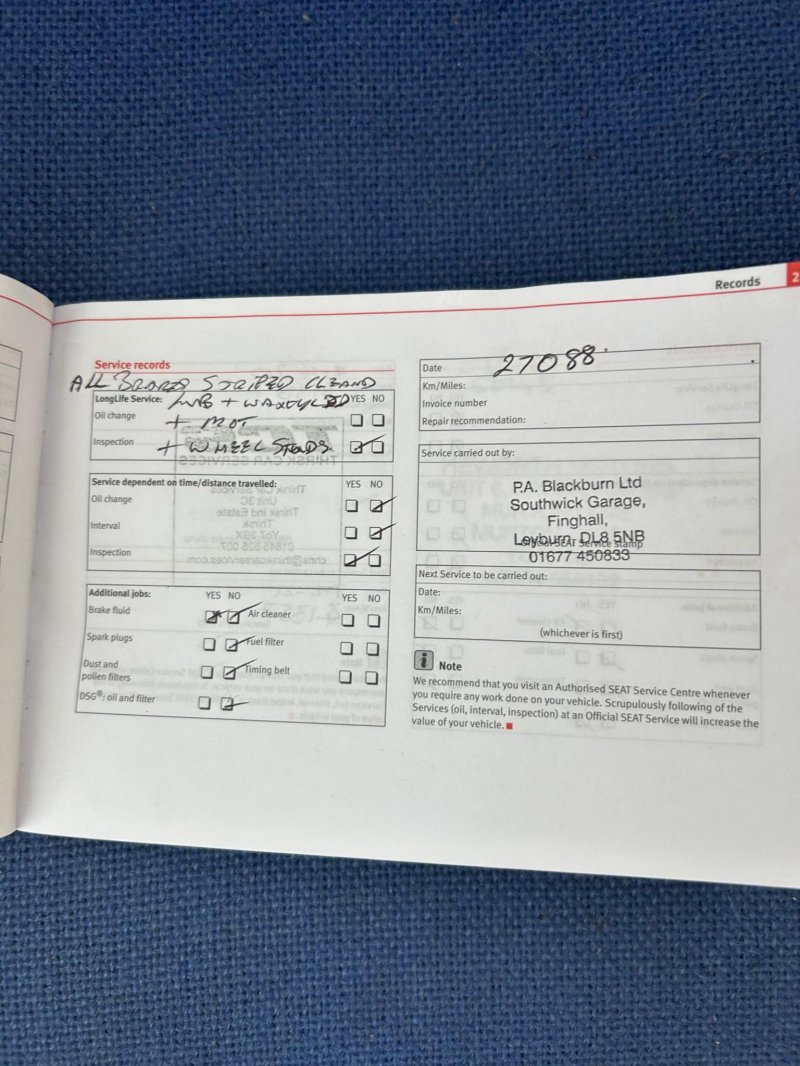 Records
2
Service records
ALL STRIPED CLEAND
LongLife Service: + YES NO
Oil change + MOT
Inspection + WHEEL STUDS.
Service dependent on time/distance travelled: YES NO
Oil change
Interval
Inspection
Additional jobs: YES NO YES NO
Brake fluid Air cleaner
Spark plugs Fuel filter
Dust and
pollen filters Timing belt
DSG®: oil and filter
Date 27088
Km/Miles:
Invoice number
Repair recommendation:
Service carried out by:
P.A. Blackburn Ltd
Southwick Garage,
Finghall,
Leyburn, DL8 5NB
SEAT Service stamp
01677 450833
Next Service to be carried out:
Date:
Km/Miles:
(whichever is first)
i Note
We recommend that you visit an Authorised SEAT Service Centre whenever
you require any work done on your vehicle. Scrupulously following of the
Services (oil, interval, inspection) at an Official SEAT Service will increase the
value of your vehicle.